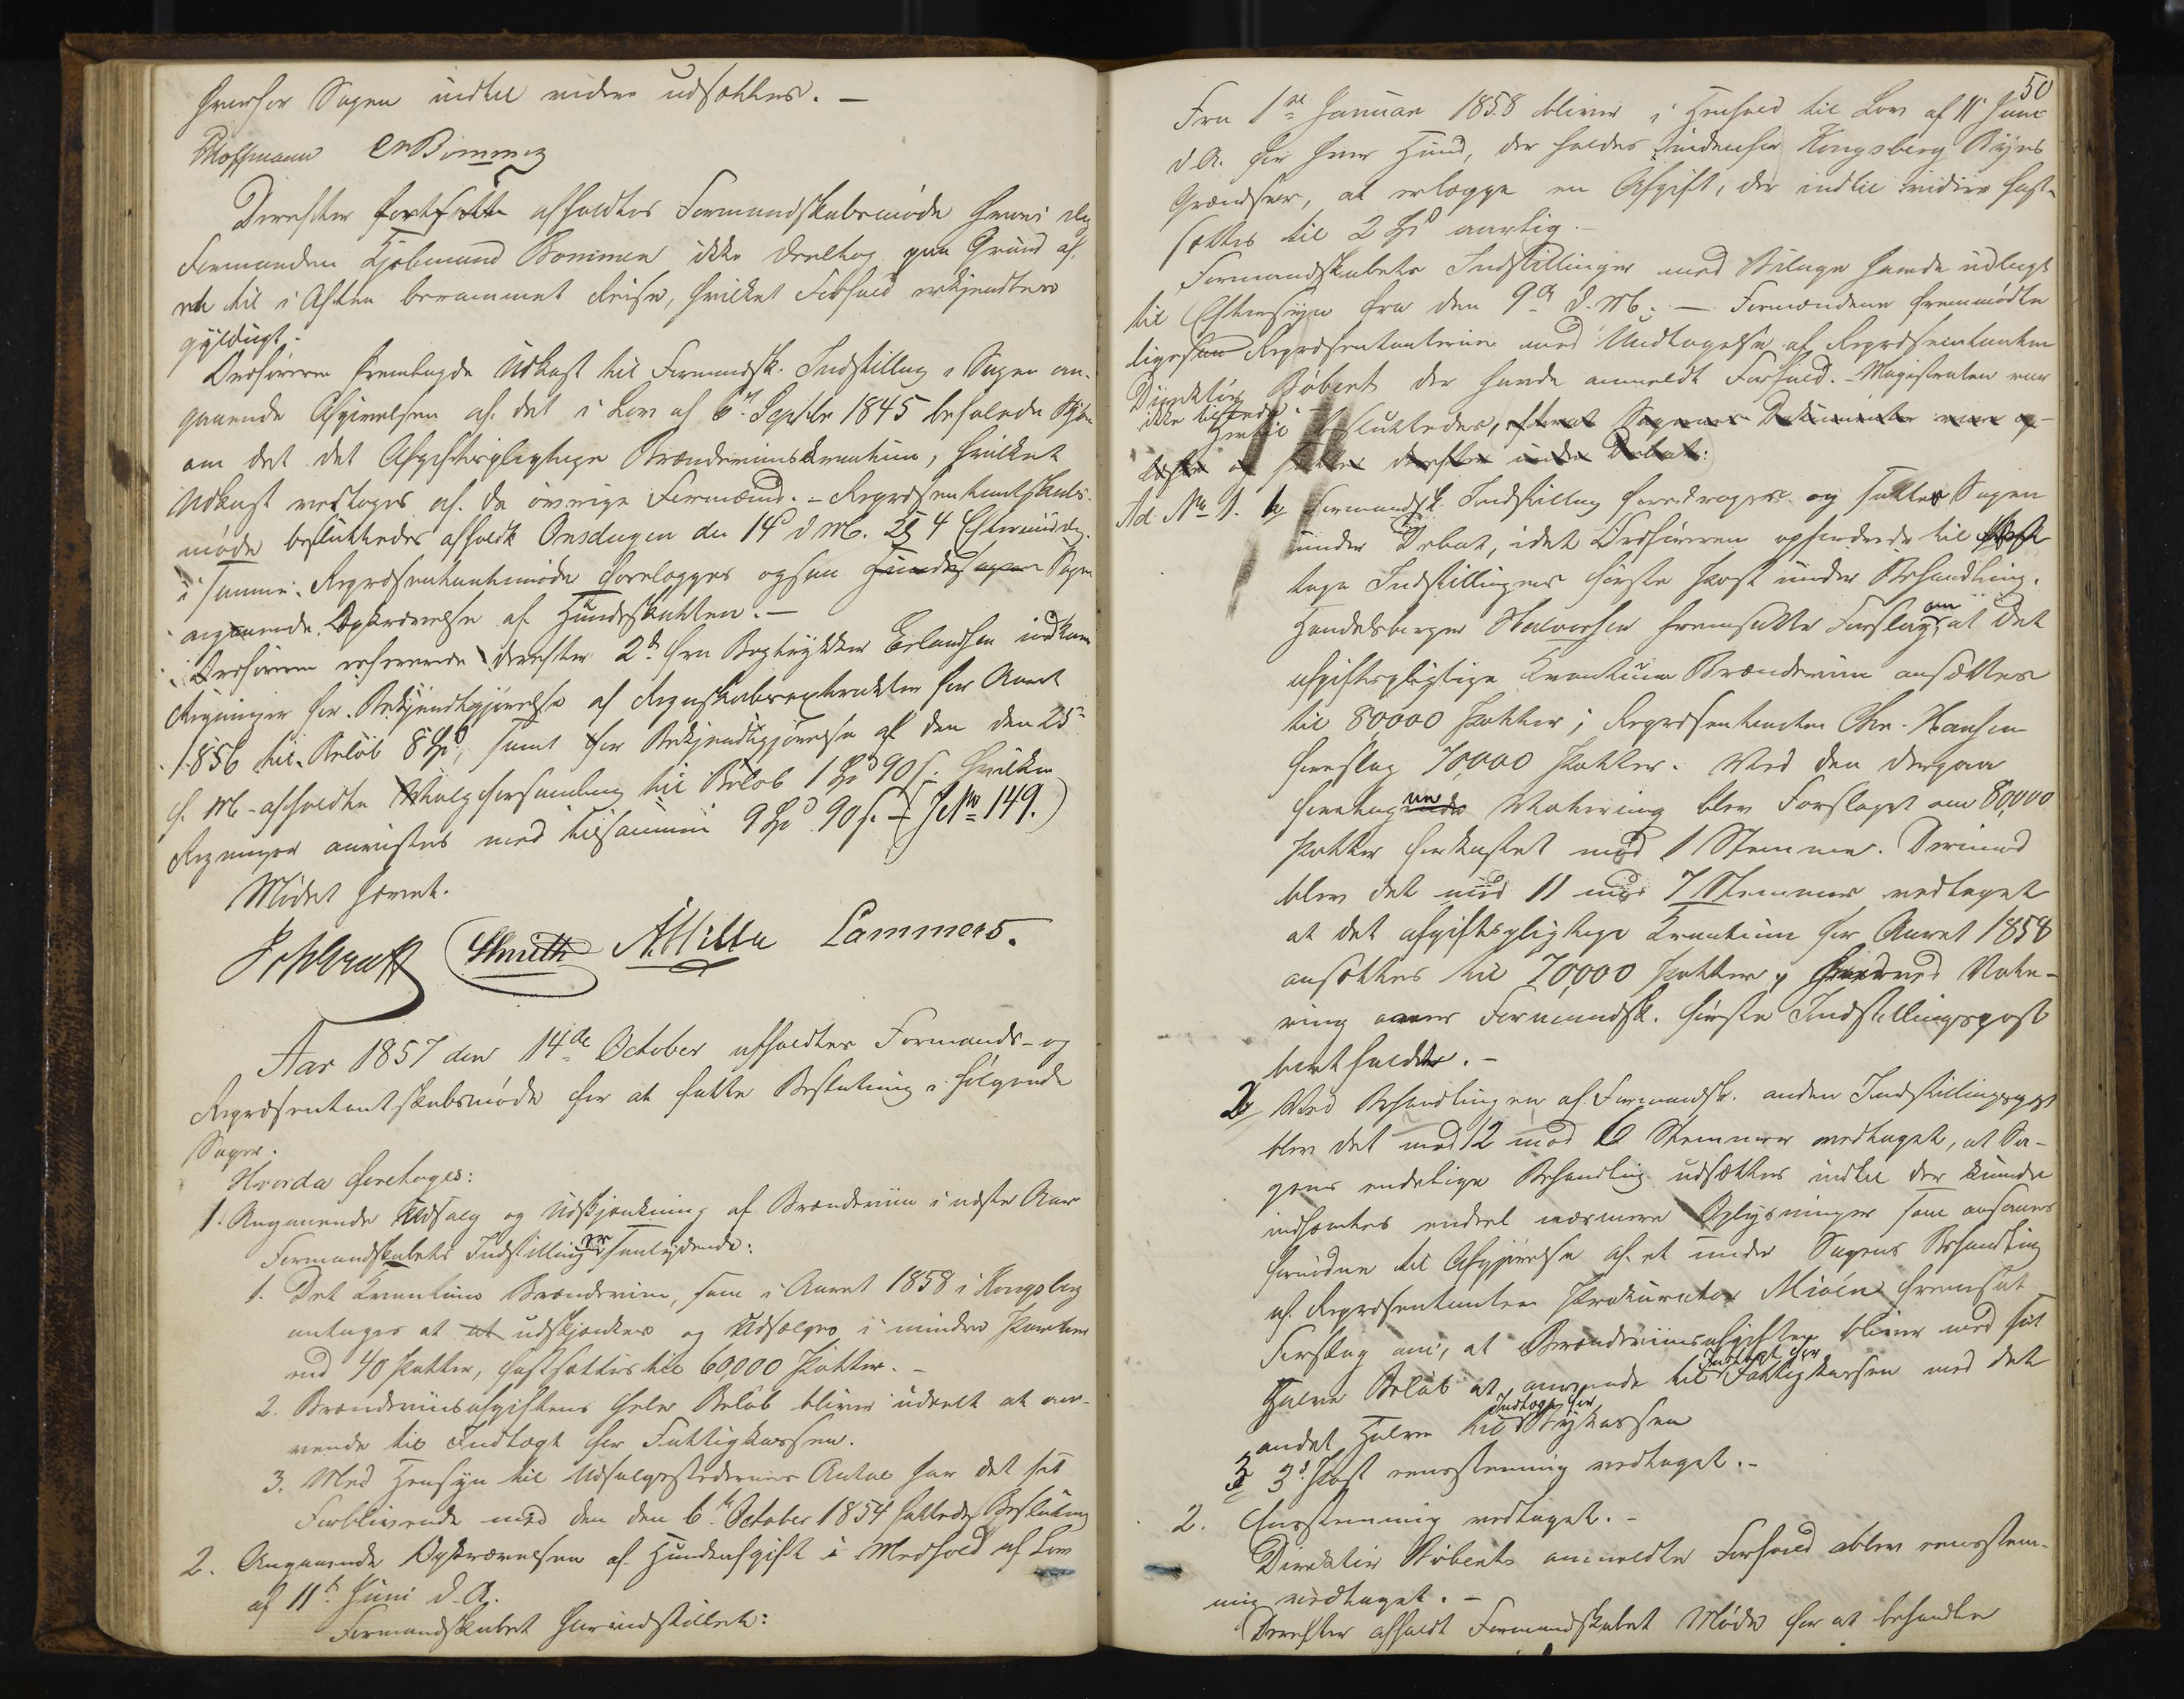 hvorfor Sagen indtil videre udsættes. –
Hoffmann CMBommen
Derefter fortsatte afholdtes Formandskabsmøde hvori dog
Formanden Kjøbmand Bommen ikke deeltog paa Grund af
en til i Aften berammet Reise, hvilket Forfald erkjendtes
gyldigt.
Ordføreren fremlagde Udkast til Formandsk. Indstilling i Sagen an-
gaaende Afgivelsen af det i Lov af 6te Septbr 1845 befalede Skjøn
om det det Afgiftspligtige Brændeviinskvantum, hvilket
Udkast vedtoges af de øvrige Formænd. – Repræsentantskabs-
møde besluttedes afholdt Onsdagen den 14d d. M. Kl 4 Eftermiddag.
i samme Repræsentantmøde forelægges ogsaa Hundesagen Sagen
angaaende Opkrævelse af Hundeskatten. –
Ordføreren refererede derefter 2de fra Bogtrykker Erlandsen indkomne
Regninger for Bekjendtgjørelse af Regnskabsextrakten for Aaret
1856 til Beløb 8 Spd, samt for Bekjendtgjørelse af den den 25de
f. M. afholdte Valgforsamling til Beløb 1 Spd 90 s. hvilke
Regninger anvistes med tilsammen 9 Spd 90 s. – (J No 149.)
Mødet hævet.
Smith A Mille Lammers.
Aar 1857 den 14de October afholdtes Formands- og
Repræsentantskabsmøde for at fatte Beslutning i følgende
Sager.
Hvorda foretoges:
1. Angaaende Udsalg og Udskjænkning af Brændeviin i næste Aar
Formandskabets Indstilling er saalydende:
1. Det Kvantum Brændeviin, som i Aaret 1858 i Kongsberg
antages at at udskjænkes og Udsælges i mindre Partier
end 40 Potter, fastsættes til 60,000 Potter. –
2. Brændeviinsafgiftens hele Beløb bliver udeelt at an-
vende til Indtægt for Fattigkassen.
3. Med Hensyn til Udsalgsstedernes Antal har det sit
Forblivende med den den 6te October 1854 fattede Beslutning
2. Angaaende Opkrævelsen af Hundeafgift i Medhold af Lov
af 11te Juni d. A.
Formandskabet har indstillet:
50
Fra 1ste Januar 1858 bliver i Henhold til Lov af 11 Juni
d. A. for hver Hund, der holdes indenfor Kongsberg Byes
Grændser, at erlægge en Afgift, der indtil videre fast-
sættes til 2 Spd aarlig. –
Formandskabets Indstillinger med Bilage havde udlagt
til Eftersyn fra den 9de d. M. – Formændene fremmødte
ligesaa Repræsentanterne med Undtagelse af Repræsentanten
Direktør Røbert der havde anmeldt Forfald. – Magistraten var
ikke tilstede. –
Hertil besluttedes, efterat Sagernes Dokumenter vare op-
læste og sattes derefter under Debat:
Ad No 1. 1 Formandsk. Indstilling foredroges og sattes Sagen
under Debat, idet Ordføreren opfordrede til først
tage Indstillingens første Post under Behandling.
Handelsborger Halvorsen fremsatte Forslag om at det
afgiftspligtige Kvantum Brændeviin ansættes
til 80,000 Potter; Repræsentanten Chr. Hansen
foreslog 70,000 Potter. Ved den derpaa
foretagne Votering blev Forslaget om 80,000
Potter forkastet mod 1 Stemme. Derimod
blev det med 11 mod 7 Stemmer vedtaget
at det afgiftspligtige Kvantum for Aaret 1858
ansættes til 70,000 Potter; hvorved Vote-
ring over Formandsk. første Indstillingspost
bortfaldt. –
2 Ved Behandlingen af Formandsk. anden Indstillingspost
blev det med 12 mod 6 Stemmer vedtaget, at Sa-
gens endelige Behandling udsættes indtil der kunde
indhentes endeel nærmere Oplysninger som ansaaes
fornødne til Afgjørelse af et under Sagens Behandling
af Repræsentanten Prokurator Mioen fremsat
Forslag om, at Brændeviinsafgiften bliver med sit
Halve Beløb at anvende til Indtægt for Fattigkassen med det
andet Halve til Indtægt for Bykassen
3 3d Post eensstemmig vedtaget. –
2. Eensstemmig vedtaget. –
Direktør Røberts anmeldte Forfald blev eensstem-
mig vedtaget. –
Derefter afholdt Formandskabet Møde for at behandle